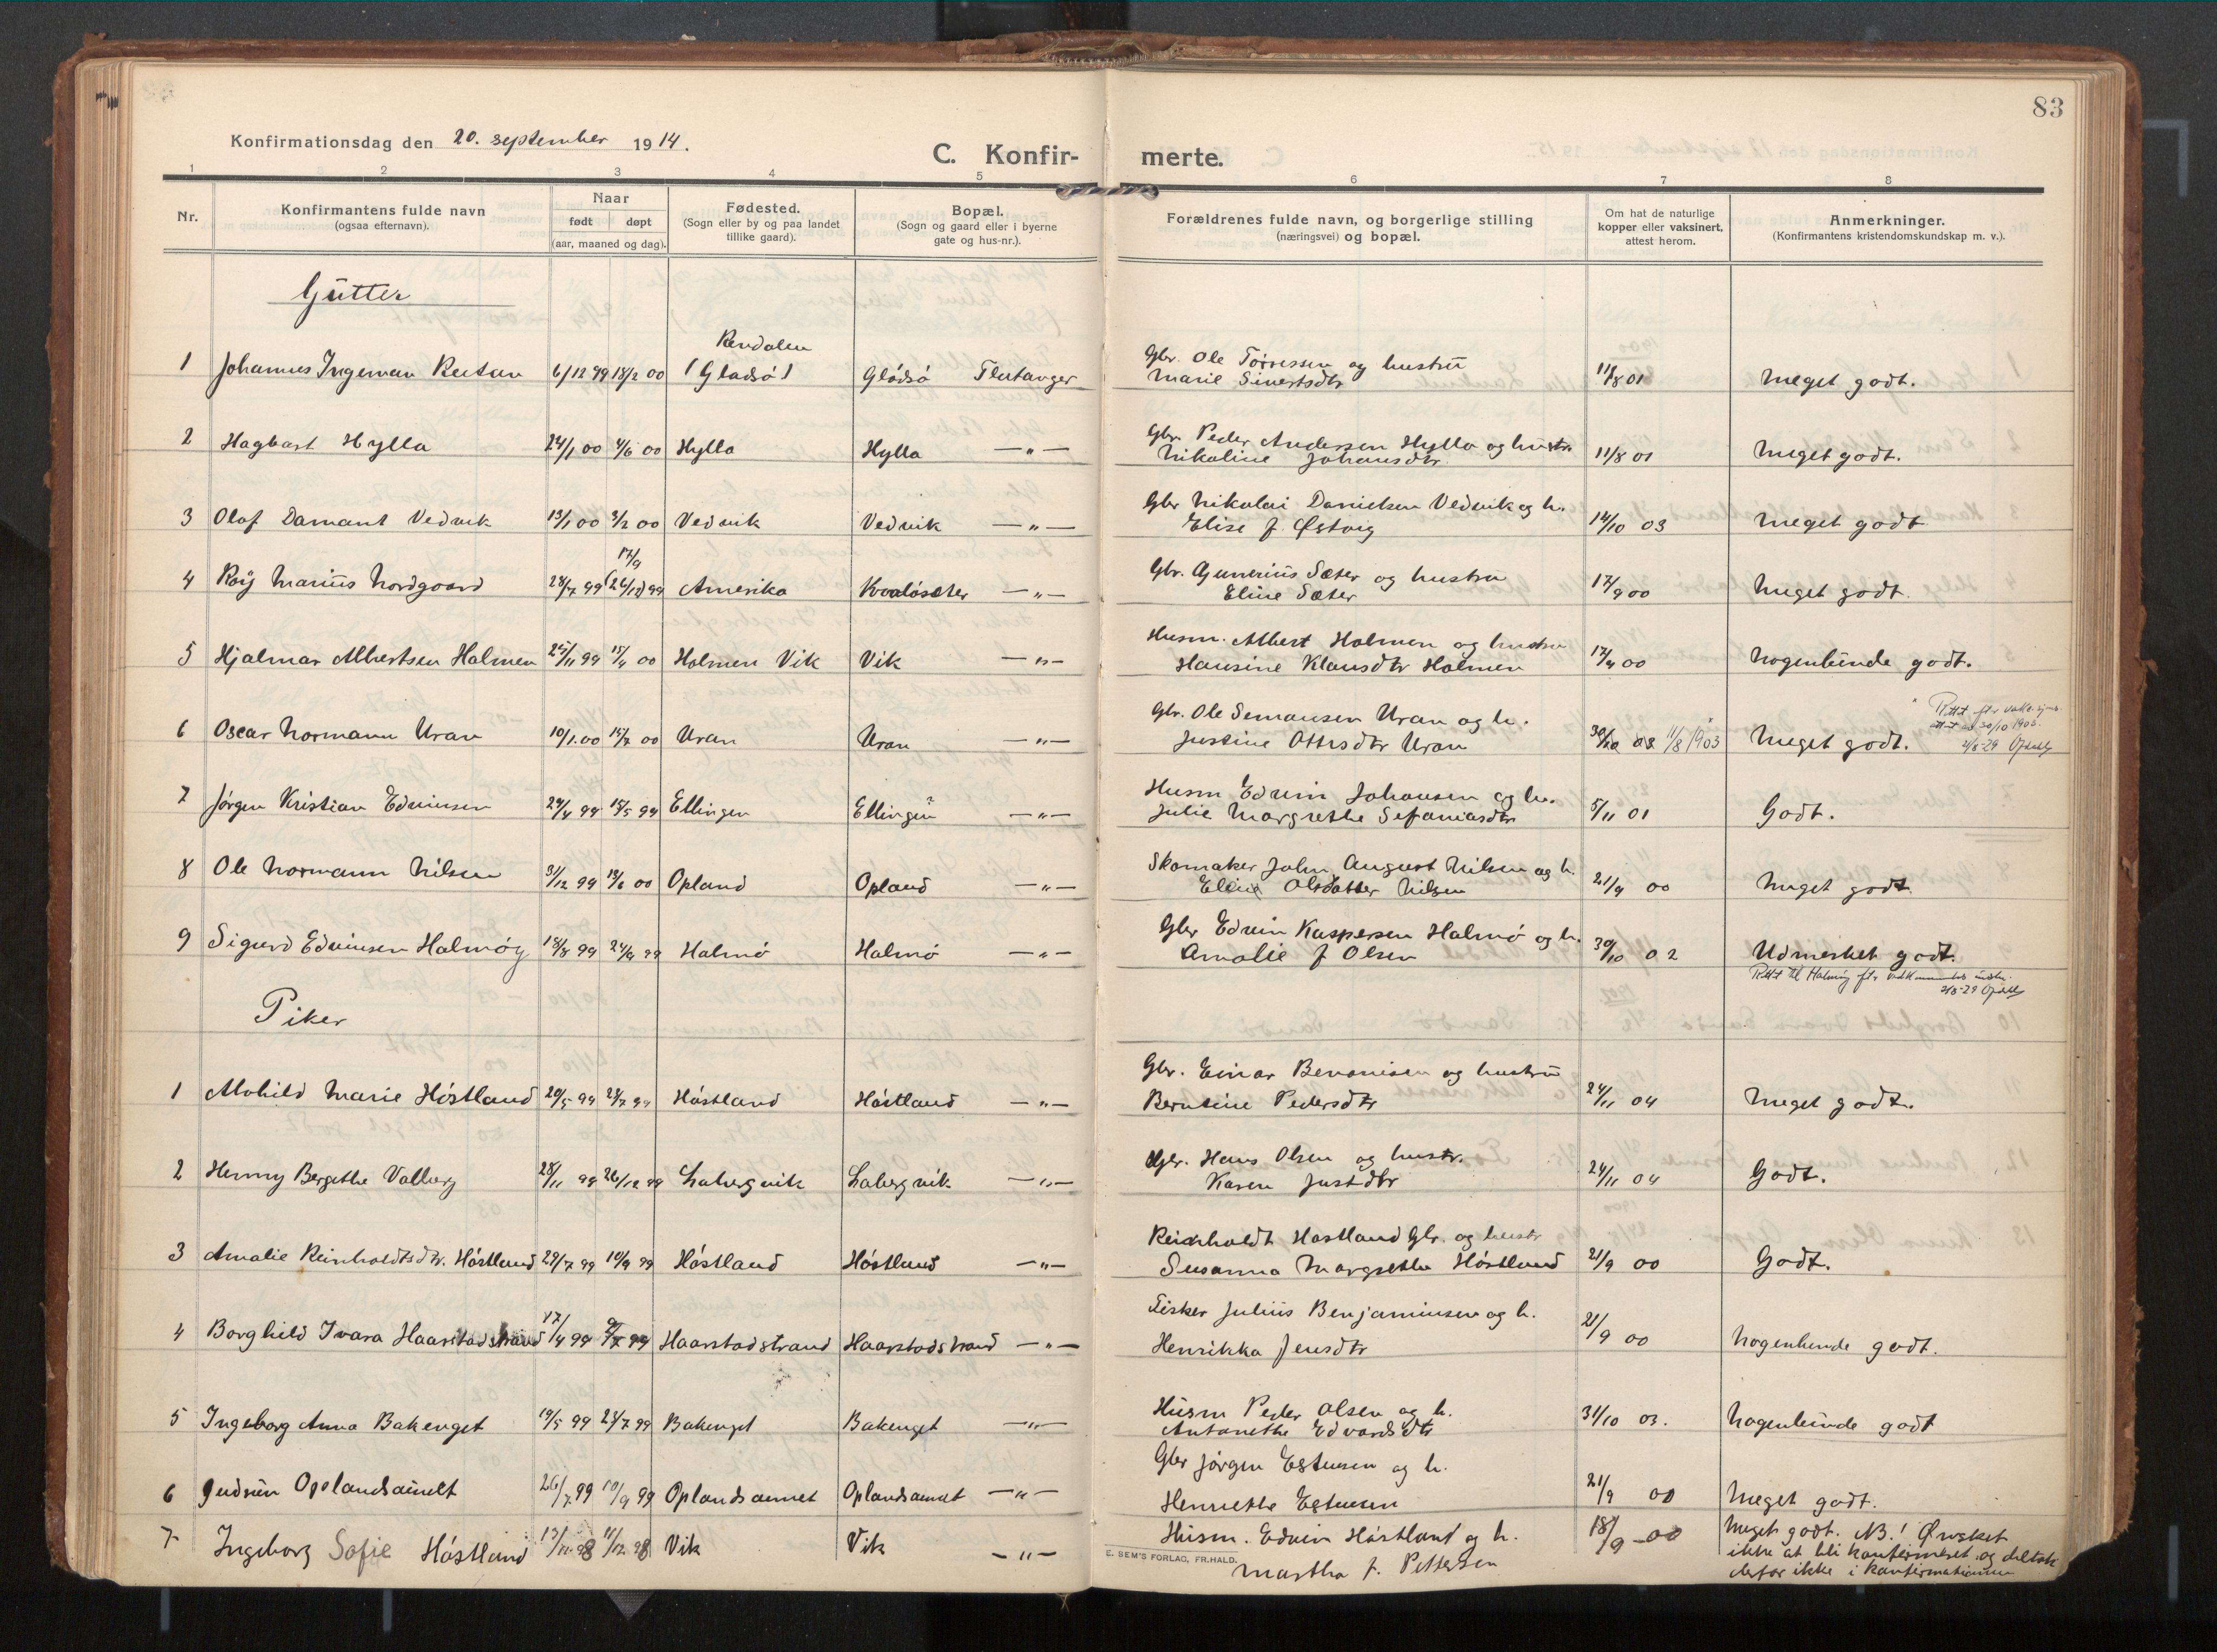 83
Konfirmationsdag den 20. september 1914.
C. Konfir-merte.
1 2 3 4 5 6 7 8
Nr.
Konfirmantens fulde navn
(ogsaa efternavn).
Naar
født døpt
(aar, maaned og dag).
Fødested.
(Sogn eller by og paa landet
tillike gaard).
Bopæl.
(Sogn og gaard eller i byerne
gate og hus-nr.).
Forældrenes fulde navn, og borgerlige stilling
(næringsvei) og bopæl.
Om hat de naturlige
kopper eller vaksinert,
attest herom.
Anmerkninger.
(Konfirmantens kristendomskundskap m. v.).
Gutter
Rendalen
1 Johannes Ingeman 6/12 99 18/2 00 (Gladsø) Glødsø Flatanger Gbr. Ole Torressen og hustru
Marie Sivertsdtr 11/8 01 Meget godt.
2 Hagbart Hylla 24/1 00 4/6 00 Hylla Hylla —"— Gbr. Peder Andersen Hylla og hustr.
Nikoline Johansdtr. 11/8 01 Meget godt.
3 Olaf Damant Vedvik 13/1 00 3/2 00 Vedvik Vedvik —"— Gbr Nikolai Danielsen Vedvik og h.
Elise f. Østvig 14/10 03 Meget godt
17/9
4 Roy Marius Nordgaard 28/7 99 (26/12) 99 Amerika Kvaløsæter —"— Gbr. Gunerius Sæter og hustru
Eline Sæter 17/9 00 Meget godt.
5 Hjalmar Albertsen Holmen 25/11 99 15/4 00 Holmen Vik Vik —"— Husm. Albert Holmen og hustru
Hansine Klausdtr Holmen 17/9 00 Nogenlunde godt.
6 Oscar Normann Uran 10/1.00 15/7 00 Uran Uran —"— Gbr. Ole Simonsen Uran og h.
Justine Ottesdtr Uran 30/10 03 11/8 1903 Meget godt.
Rettet efter
30/10 1903.
2/8-29
7 Jørgen Kristian Edvinsen 29/4 99 15/5 99 Ellingen Ellingen —"— Husm Edvin Johansen og h.
Julie Margrethe Sefaniasdtr 5/11 01 Godt.
8 Ole Normann Nilsen 31/12 99 13/6 00 Opland Opland —"— Skomaker John August Nilsen og h.
Eline Olsdatter Nilsen 21/9 00 Meget godt.
9 Sigurd Edvinsen Halmøy 18/8 99 24/9 99 Halmø Halmø —"— Gbr Edvin Kaspersen Halmø og h.
Amalie f Olsen 30/10 02 Udmerket godt.
Rettet til Halmøy efter
2/8-29
Piker
1 Alvhild Marie Høstland 20/5 99 23/7 99 Høstland Høstland —"— Gbr. Einar Benonisen og hustru
Berntine Pedersdtr 24/11 04 Meget godt.
2 Henny Bergethe Valberg 28/11 99 26/12 99 Labergvik Labergvik —"— Gbr. Hans Olsen og hustr.
Karen Justdtr 24/11 04 Godt.
3 Amalie Reinholdtsdtr. Høstland 29/7 99 10/9 99 Høstland Høstland —"— Reinholdt Høstland Gbr. og hustr
Susanna Margrethe Høstland 21/9 00 Godt.
4 Borghild Ivara Haarstadstrand 17/4 99 99 Haarstadstrand Haarstadstrand —"— Fisker Julius Benjaminsen og h.
Henrikka Jensdtr 21/9 00 Nogenlunde godt.
5 Ingeborg Anna Bakenget 19/5 99 23/7 99 Bakenget Bakenget —"— Husm Peder Olsen og h.
Antonethe Edvardsdtr 31/10 03. Nogenlunde godt
6 Gudrun Oplandsaunet 26/7 99 10/9 99 Oplandsaunet Oplandsaunet —"— Gbr Jørgen Estensen og h.
Henriette Estensen 21/9 00 Meget godt.
7 Ingeborg Sofie Høstland 13/11 98 11/12 98 Vik Vik —"— Husm. Edvin Høstland og h.
Martha f. Pettersen 18/9-00 Meget godt. NB! Ønsket
ikke at bli konfirmeret og deltok
derfor ikke i konfirmationen
E. SEM'S FORLAG, FR.HALD.